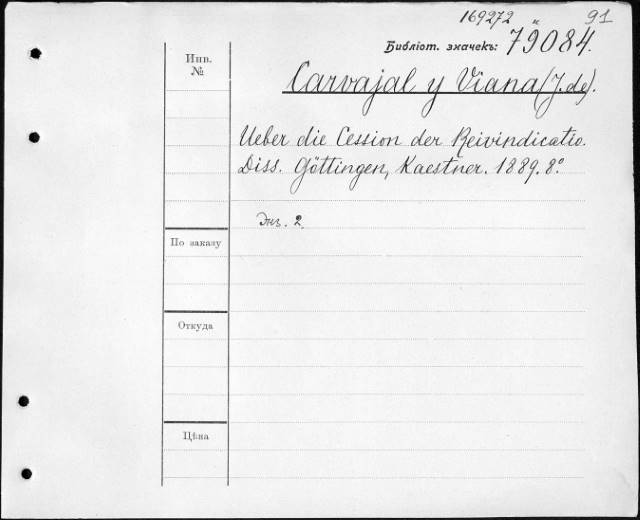 169272 91
Библіот. значекъ: 79084.
Инв.
№
Carvajal y Viana (J. de).
Ueber die Cession der Reivindicatio.
Diss. Göttingen, Kaestner. 1889. 8°.
Экз. 2.
По заказу
Откуда
Цѣна